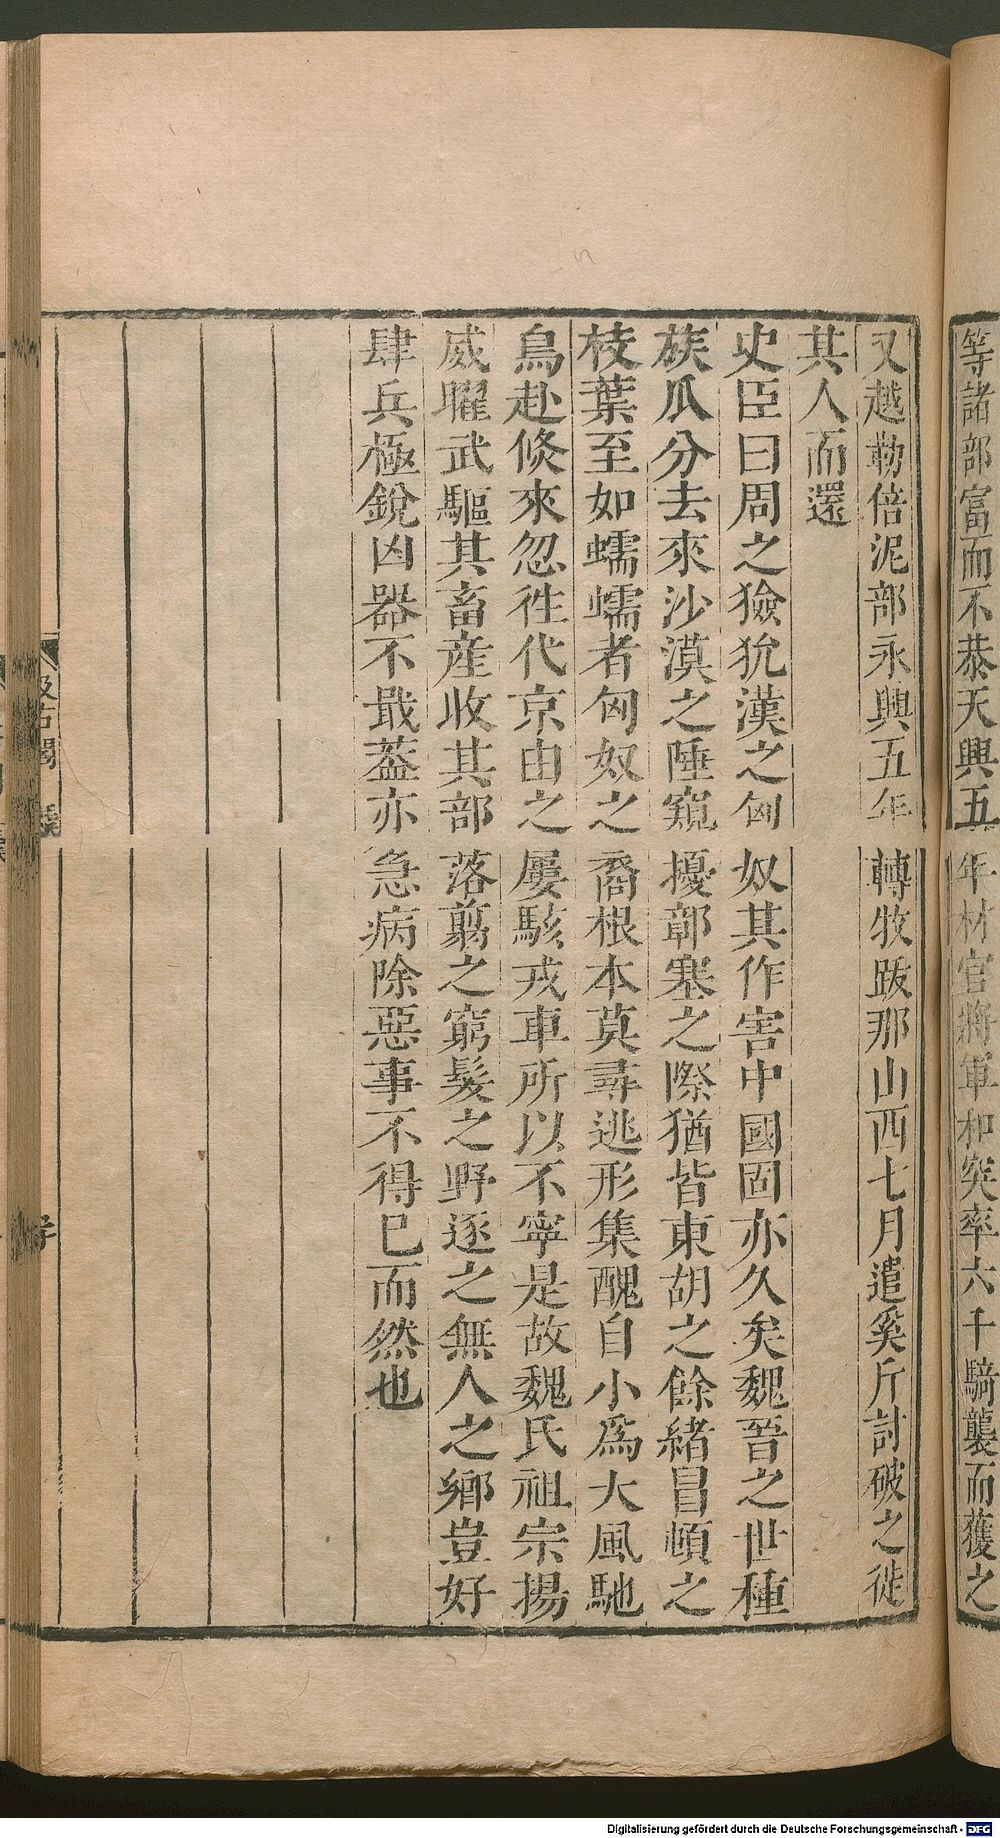 等諸部富而不恭天興五年材官將軍和突率六千騎襲而獲之
又越勒倍泥部永興五年轉牧跋那山西七月遣奚斤討破之徙
其人而還
史臣曰周之獫狁漢之匈奴其作害中國固亦久矣魏晉之世種
族瓜分去來沙漠之陲窺擾鄣塞之際猶皆東胡之餘緒冒頓之
枝葉至如蠕蠕者匈奴之裔根本莫尋逃形集醜自小爲大風馳
鳥赴倐來忽徃代京由之屢駭戎車所以不寧是故魏氏祖宗揚
威曜武驅其畜産收其部落翦之窮髮之野逐之無人之鄉豈好
肆兵極銳凶器不戢蓋亦急病除惡事不得已而然也
汲古閣
Digitalisierung gefördert durch die Deutsche Forschungsgemeinschaft - DFG